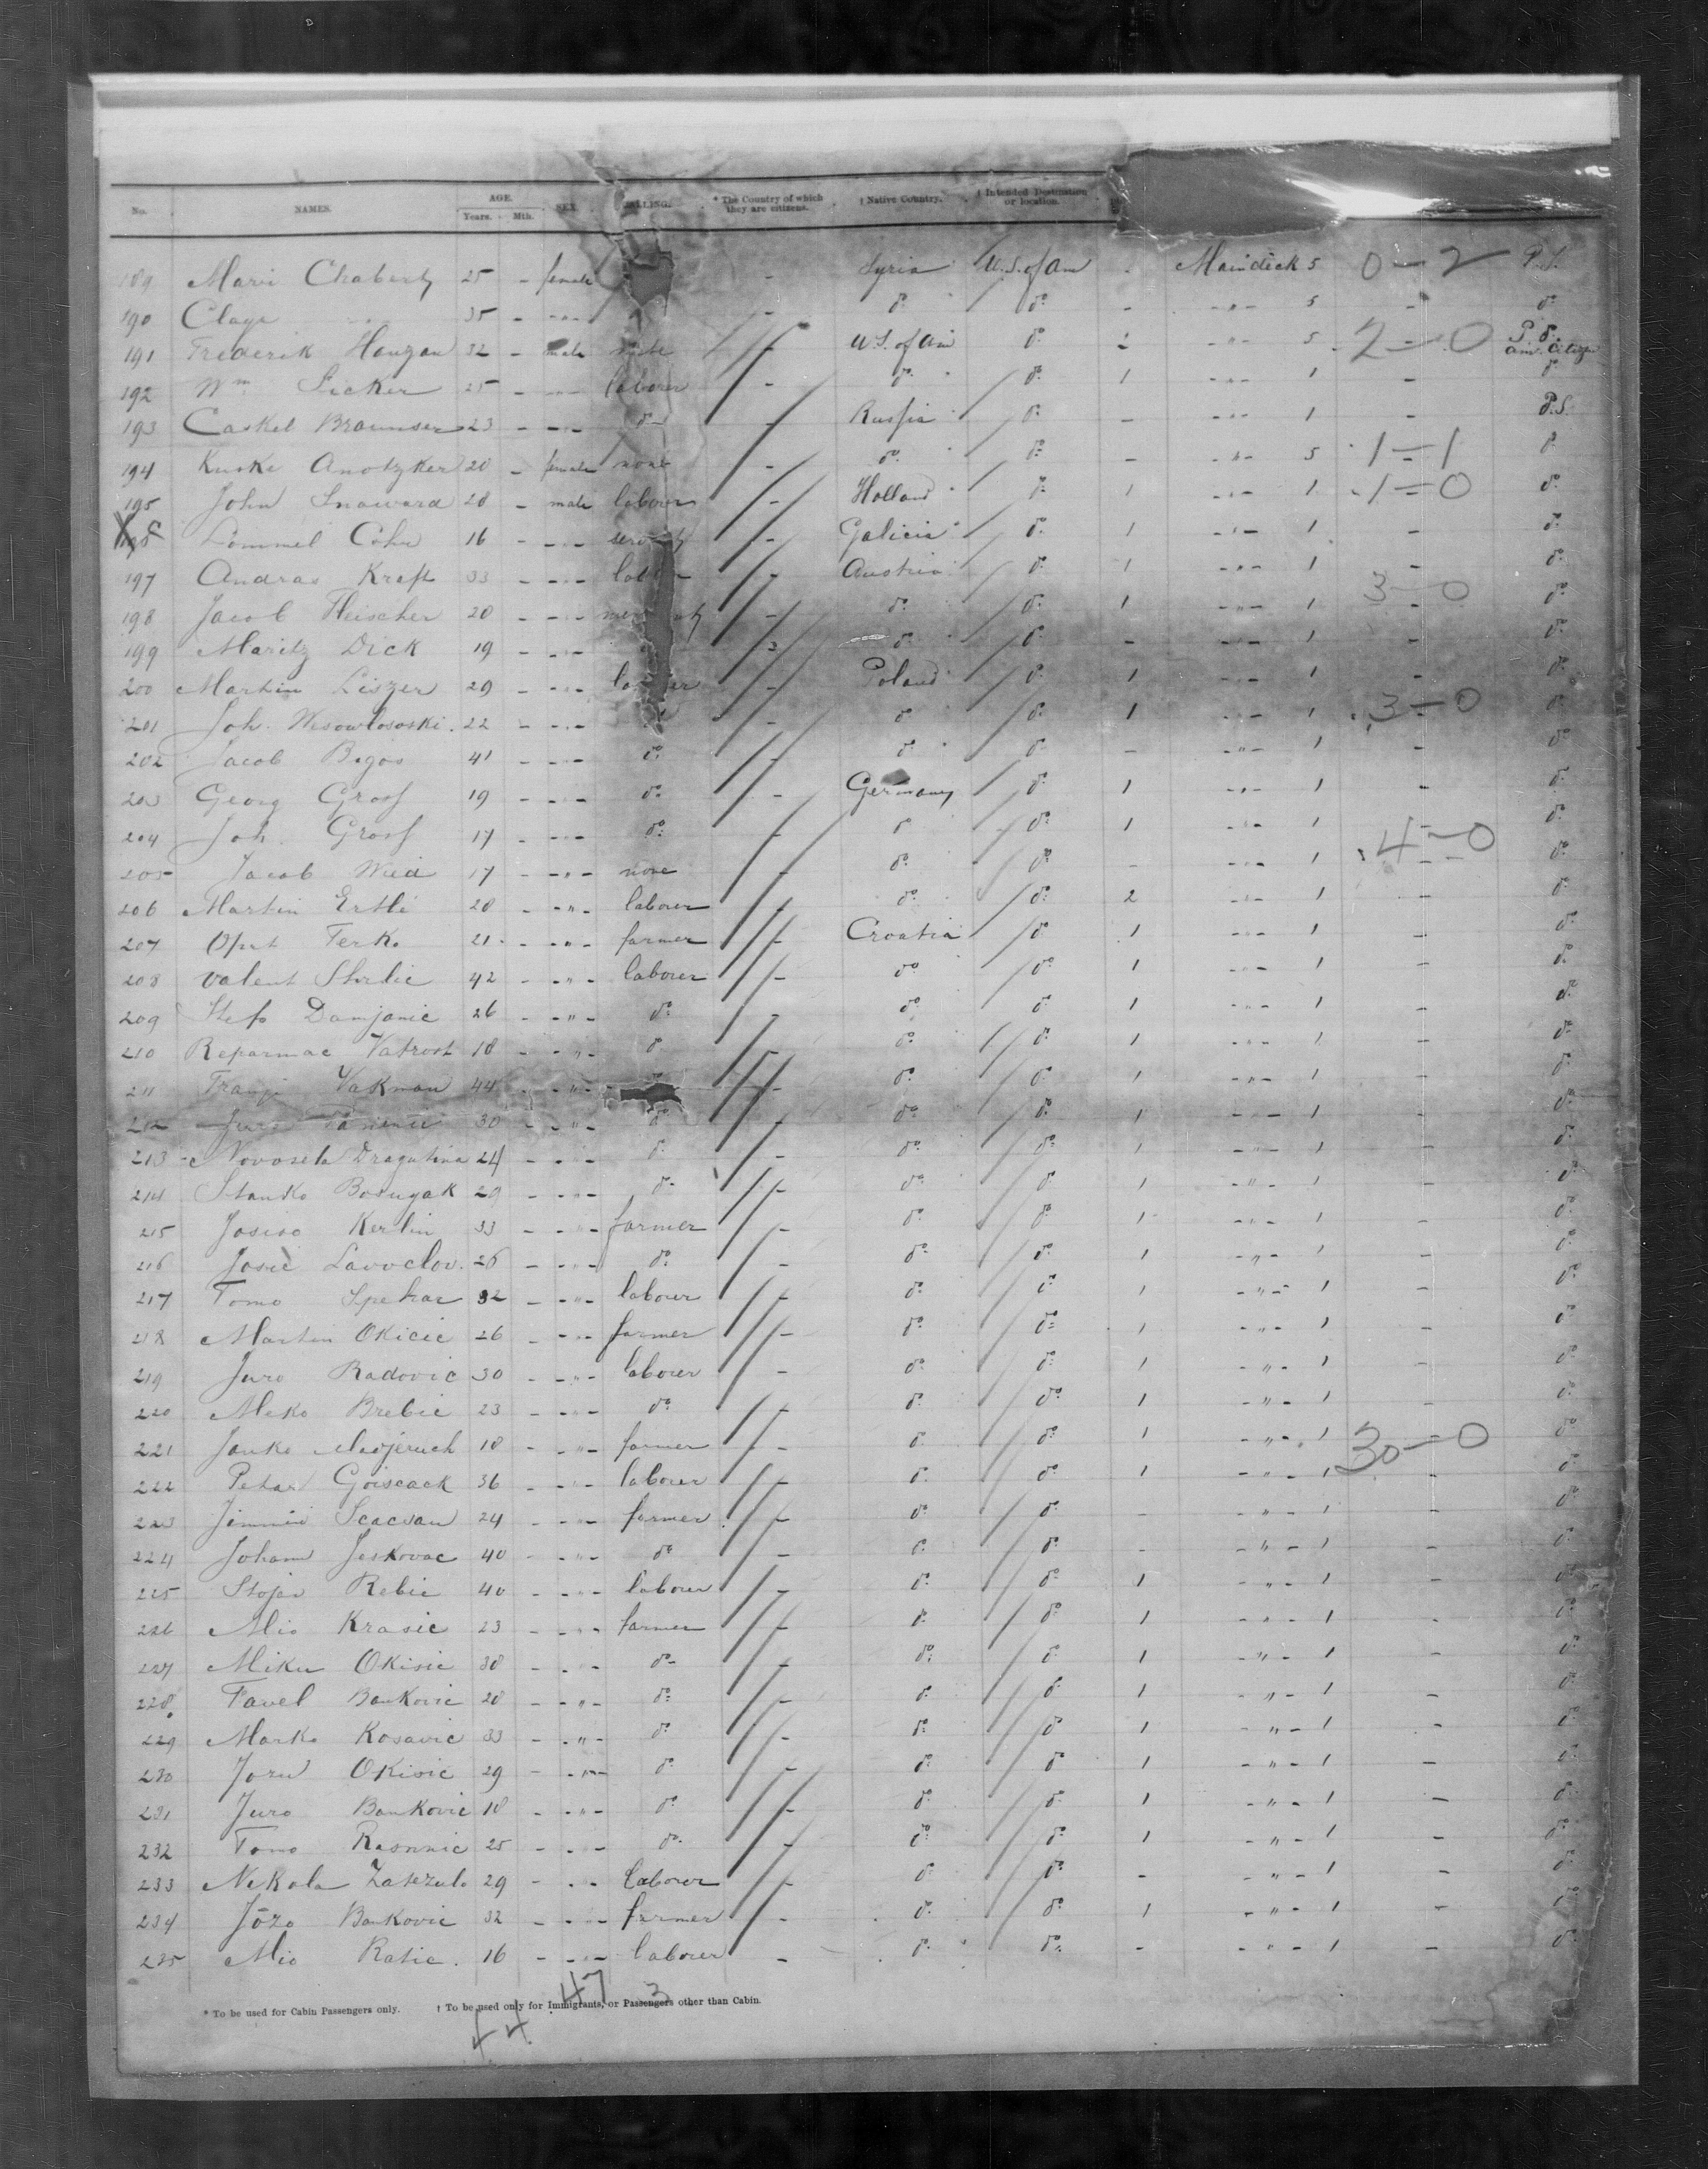 No. NAMES. AGE. Years. Mth. SEX. CALLING. * The Country of which they are citizens. † Native Country. † Intended Destination or location.
189 Mari Chabarty 25 - female - Syria U.S. of Am - Maindeck 5 0-2 P.S.
190 Claya 35 - -"- - do do - -"- 5 - do
191 Frederik Hauzan 32 - male - U.S. of Am do 2 -"- 5 2-0 P. do. am. Citizen
192 Wm Secker 25 - -"- laborer - do do 1 -"- 1 - do
193 Caskel Braunser 23 - -"- do - Russia do - -"- 1 - P.S.
194 Kuske Anotzker 20 - female none - do do - -"- 5 1-1 do
195 John Snaward 28 - male laborer - Holland do 1 -"- 1 1-0 do
Lommel Cohn 16 - -"- - Galicia do 1 -"- 1 - do
197 Andras Kraft 33 - -"- - Austria do 1 -"- 1 - do
198 Jacob Fleischer 20 - -"- - do do 1 -"- 1 3-0 do
199 Maritz Dick 19 - -"- do do - -"- 1 - do
200 Martin Liszer 29 - -"- - Poland do 1 -"- 1 - do
201 Joh. Wesowlososki. 22 - -"- - do do 1 -"- 1 3-0 do
202 Jacob Begos 41 - -"- do - do do - -"- 1 - do
203 Georg Gross 19 - -"- do - Germany do 1 -"- 1 - do
204 Joh. Gross 17 - -"- do - do do 1 -"- 1 - do
205 Jacob Wied 17 - -"- none - do do - -"- 1 4-0 do
206 Martin Ertli 28 - -"- laborer - do do 2 -"- 1 - do
207 Opet Ferko 21 - -"- farmer - Croatia do 1 -"- 1 - do
208 Valent Shrlic 42 - -"- laborer - do do 1 -"- 1 - do
209 Stefo Damjanic 26 - -"- do - do do 1 -"- 1 - do
210 Reparmac Vatrost 18 - -"- do - do do 1 -"- 1 - do
211 Franjo Vakman 44 - -"- - do do 1 -"- 1 - do
212 Juro 30 - -"- do - do do 1 -"- 1 - do
213 Novosela Dragutina 24 - -"- do - do do 1 -"- 1 - do
214 Stanko Bosngak 29 - -"- do - do do 1 -"- 1 - do
215 Josiso Kerlin 33 - -"- farmer - do do 1 -"- 1 - do
216 Josic Lavoclov. 26 - -"- do - do do 1 -"- 1 - do
217 Tomo Spehar 32 - -"- laborer - do do 1 -"- 1 - do
218 Martin Okicic 26 - -"- farmer - do do 1 -"- 1 - do
219 Juro Radovic 30 - -"- laborer - do do 1 -"- 1 - do
220 Meko Brebic 23 - -"- do - do do 1 -"- 1 - do
221 Janko Medjeruch 18 - -"- farmer - do do 1 -"- 1 30-0 do
222 Petar Goiscack 36 - -"- laborer - do do 1 -"- 1 - do
223 Scacsan 24 - -"- farmer - do do - -"- 1 - do
224 Johann Jeskovac 40 - -"- do - do do - -"- 1 - do
225 Stojan Rebic 40 - -"- laborer - do do 1 -"- 1 - do
226 Mio Krasic 23 - -"- farmer - do do 1 -"- 1 - do
227 Miku Okisic 38 - -"- do - do do 1 -"- 1 - do
228 Pavel Bankovic 28 - -"- do - do do 1 -"- 1 - do
229 Marko Kosavic 33 - -"- do - do do 1 -"- 1 - do
230 Joru Okisic 29 - -"- do - do do 1 -"- 1 - do
231 Juro Bankovic 18 - -"- do - do do 1 -"- 1 - do
232 Tomo Rasnnic 25 - -"- do - do do 1 -"- 1 - do
233 Nekola Zatezulo 29 - -"- laborer - do do - -"- 1 - do
234 Jozo Bankovic 32 - -"- farmer - do do 1 -"- 1 - do
235 Mio Ratic. 16 - -"- laborer - do do - -"- 1 - do
47 3
* To be used for Cabin Passengers only. † To be used only for Immigrants, or Passengers other than Cabin.
44